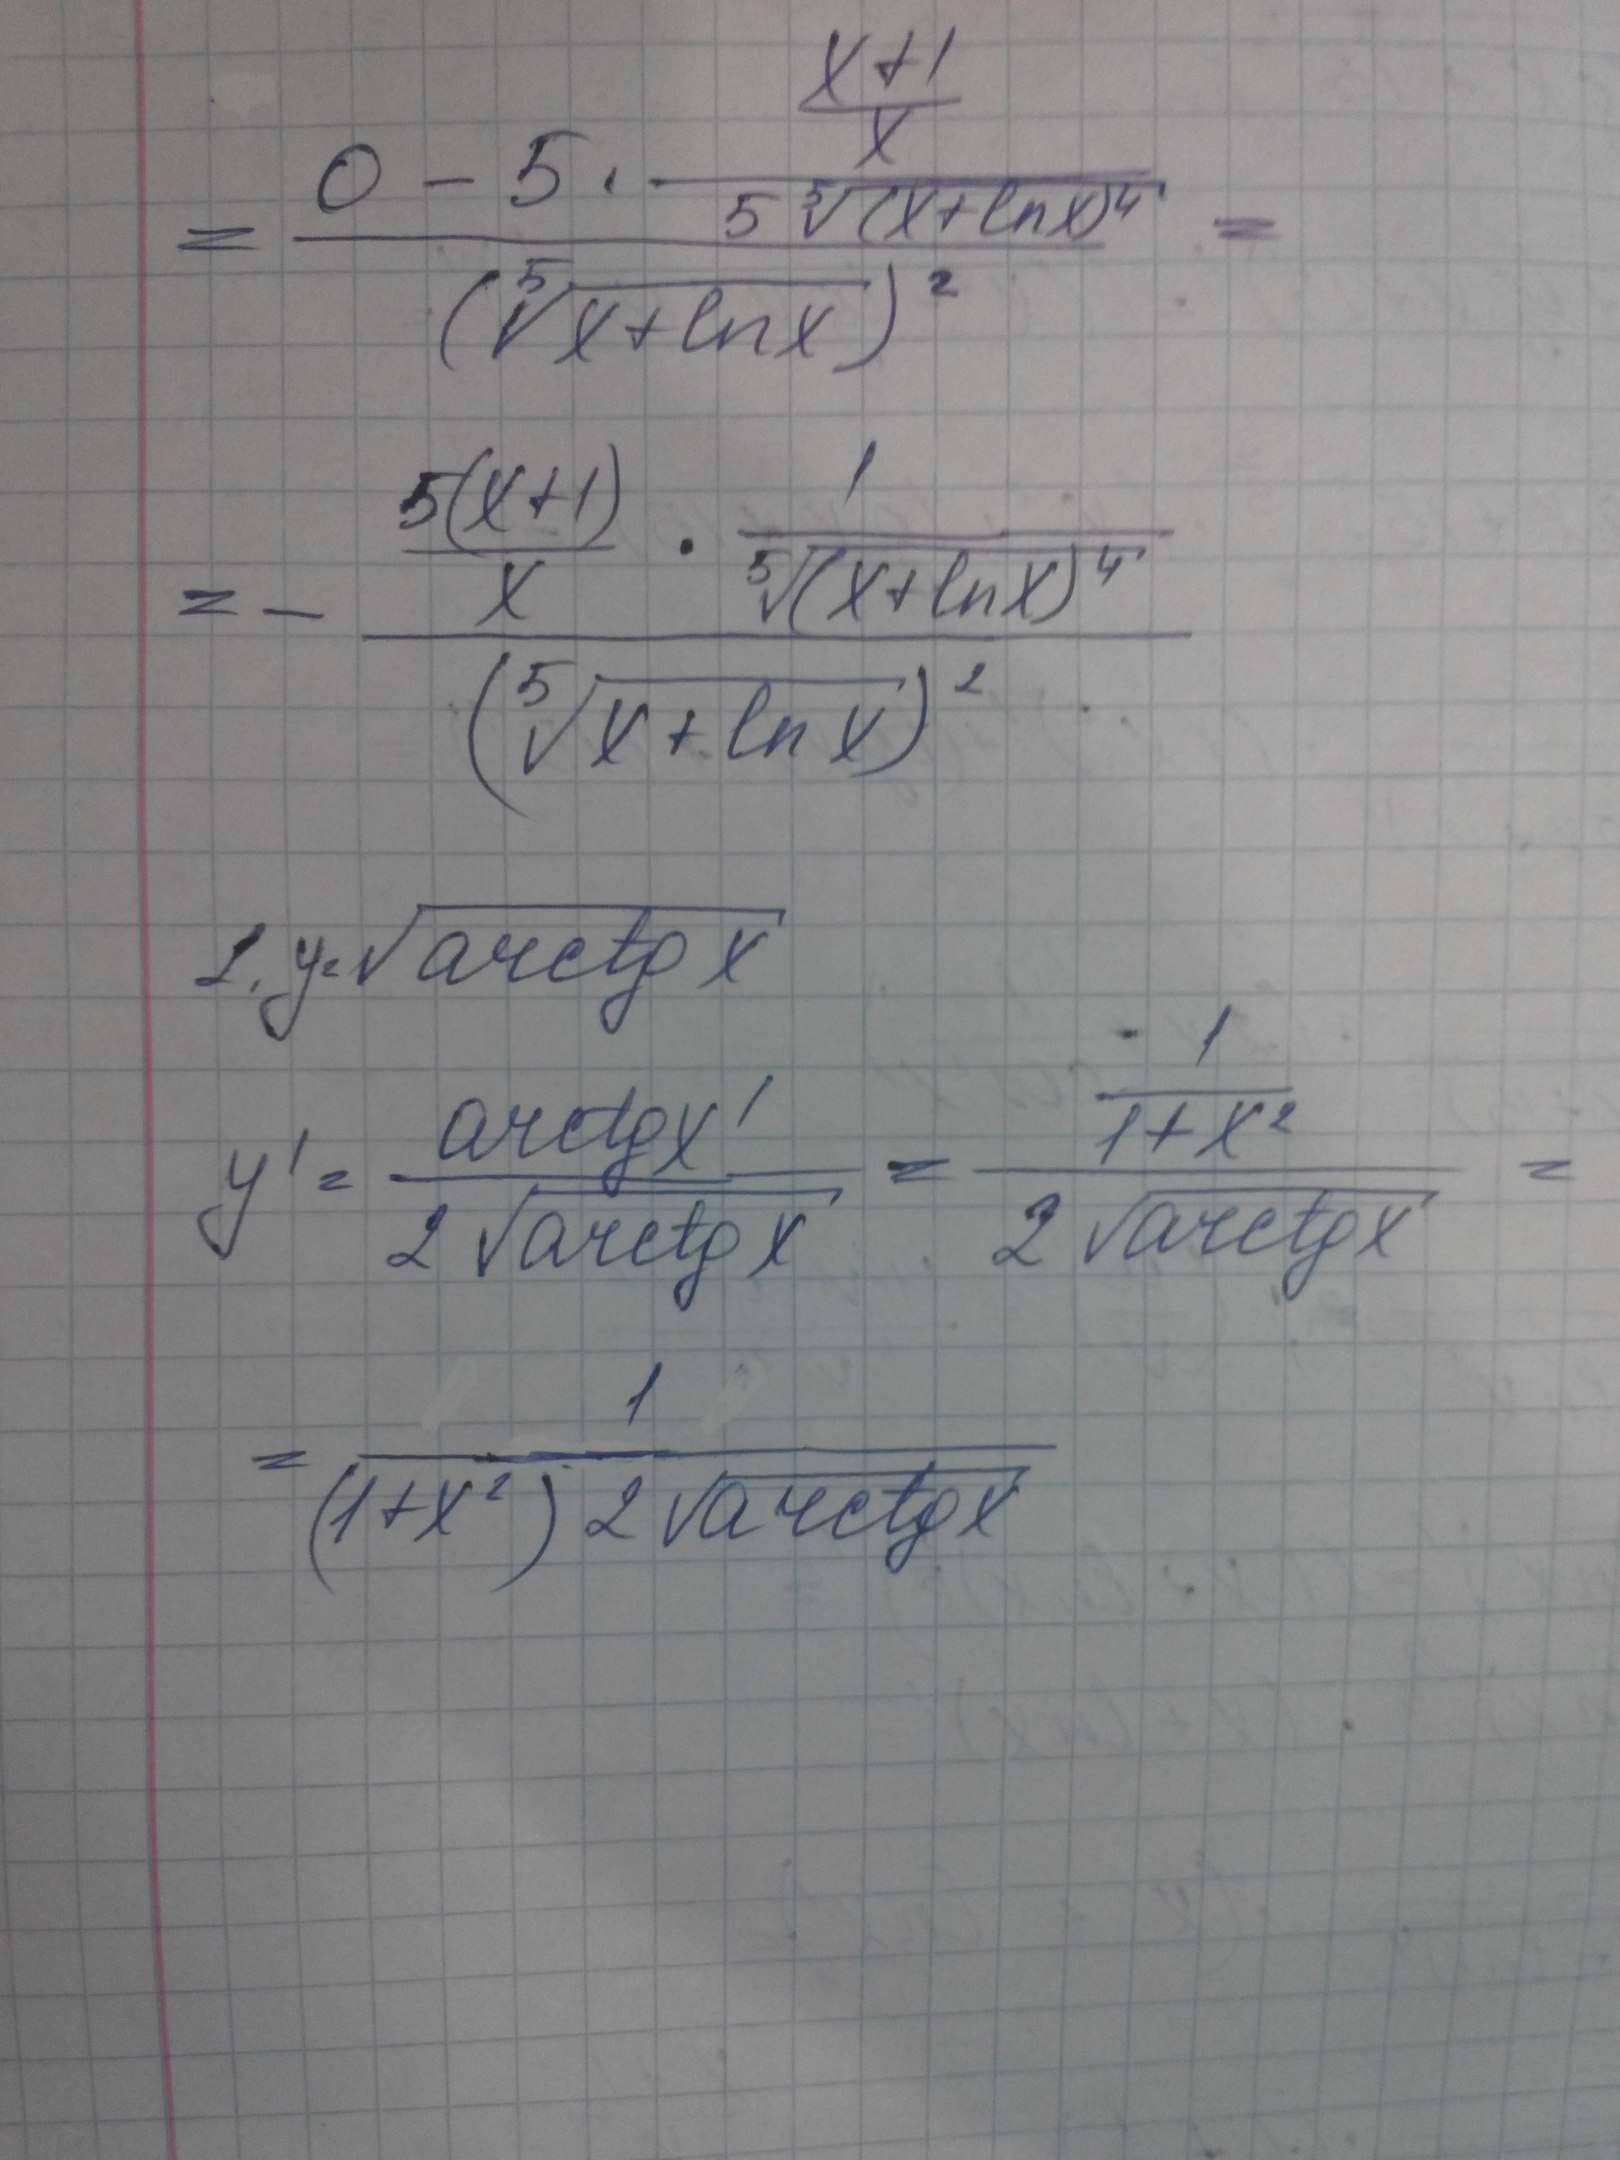 = (0 - 5 · ((x+1)/x)/(5 ⁵√(x+lnx)⁴))/(⁵√(x+lnx))² =
= - (5(x+1)/x · 1/⁵√(x+lnx)⁴)/(⁵√(x+lnx))²
2. y=√(arctg x)
y' = arctgx'/(2√(arctg x)) = (1/(1+x²))/(2√(arctgx)) =
= 1/((1+x²) 2√(arctgx))